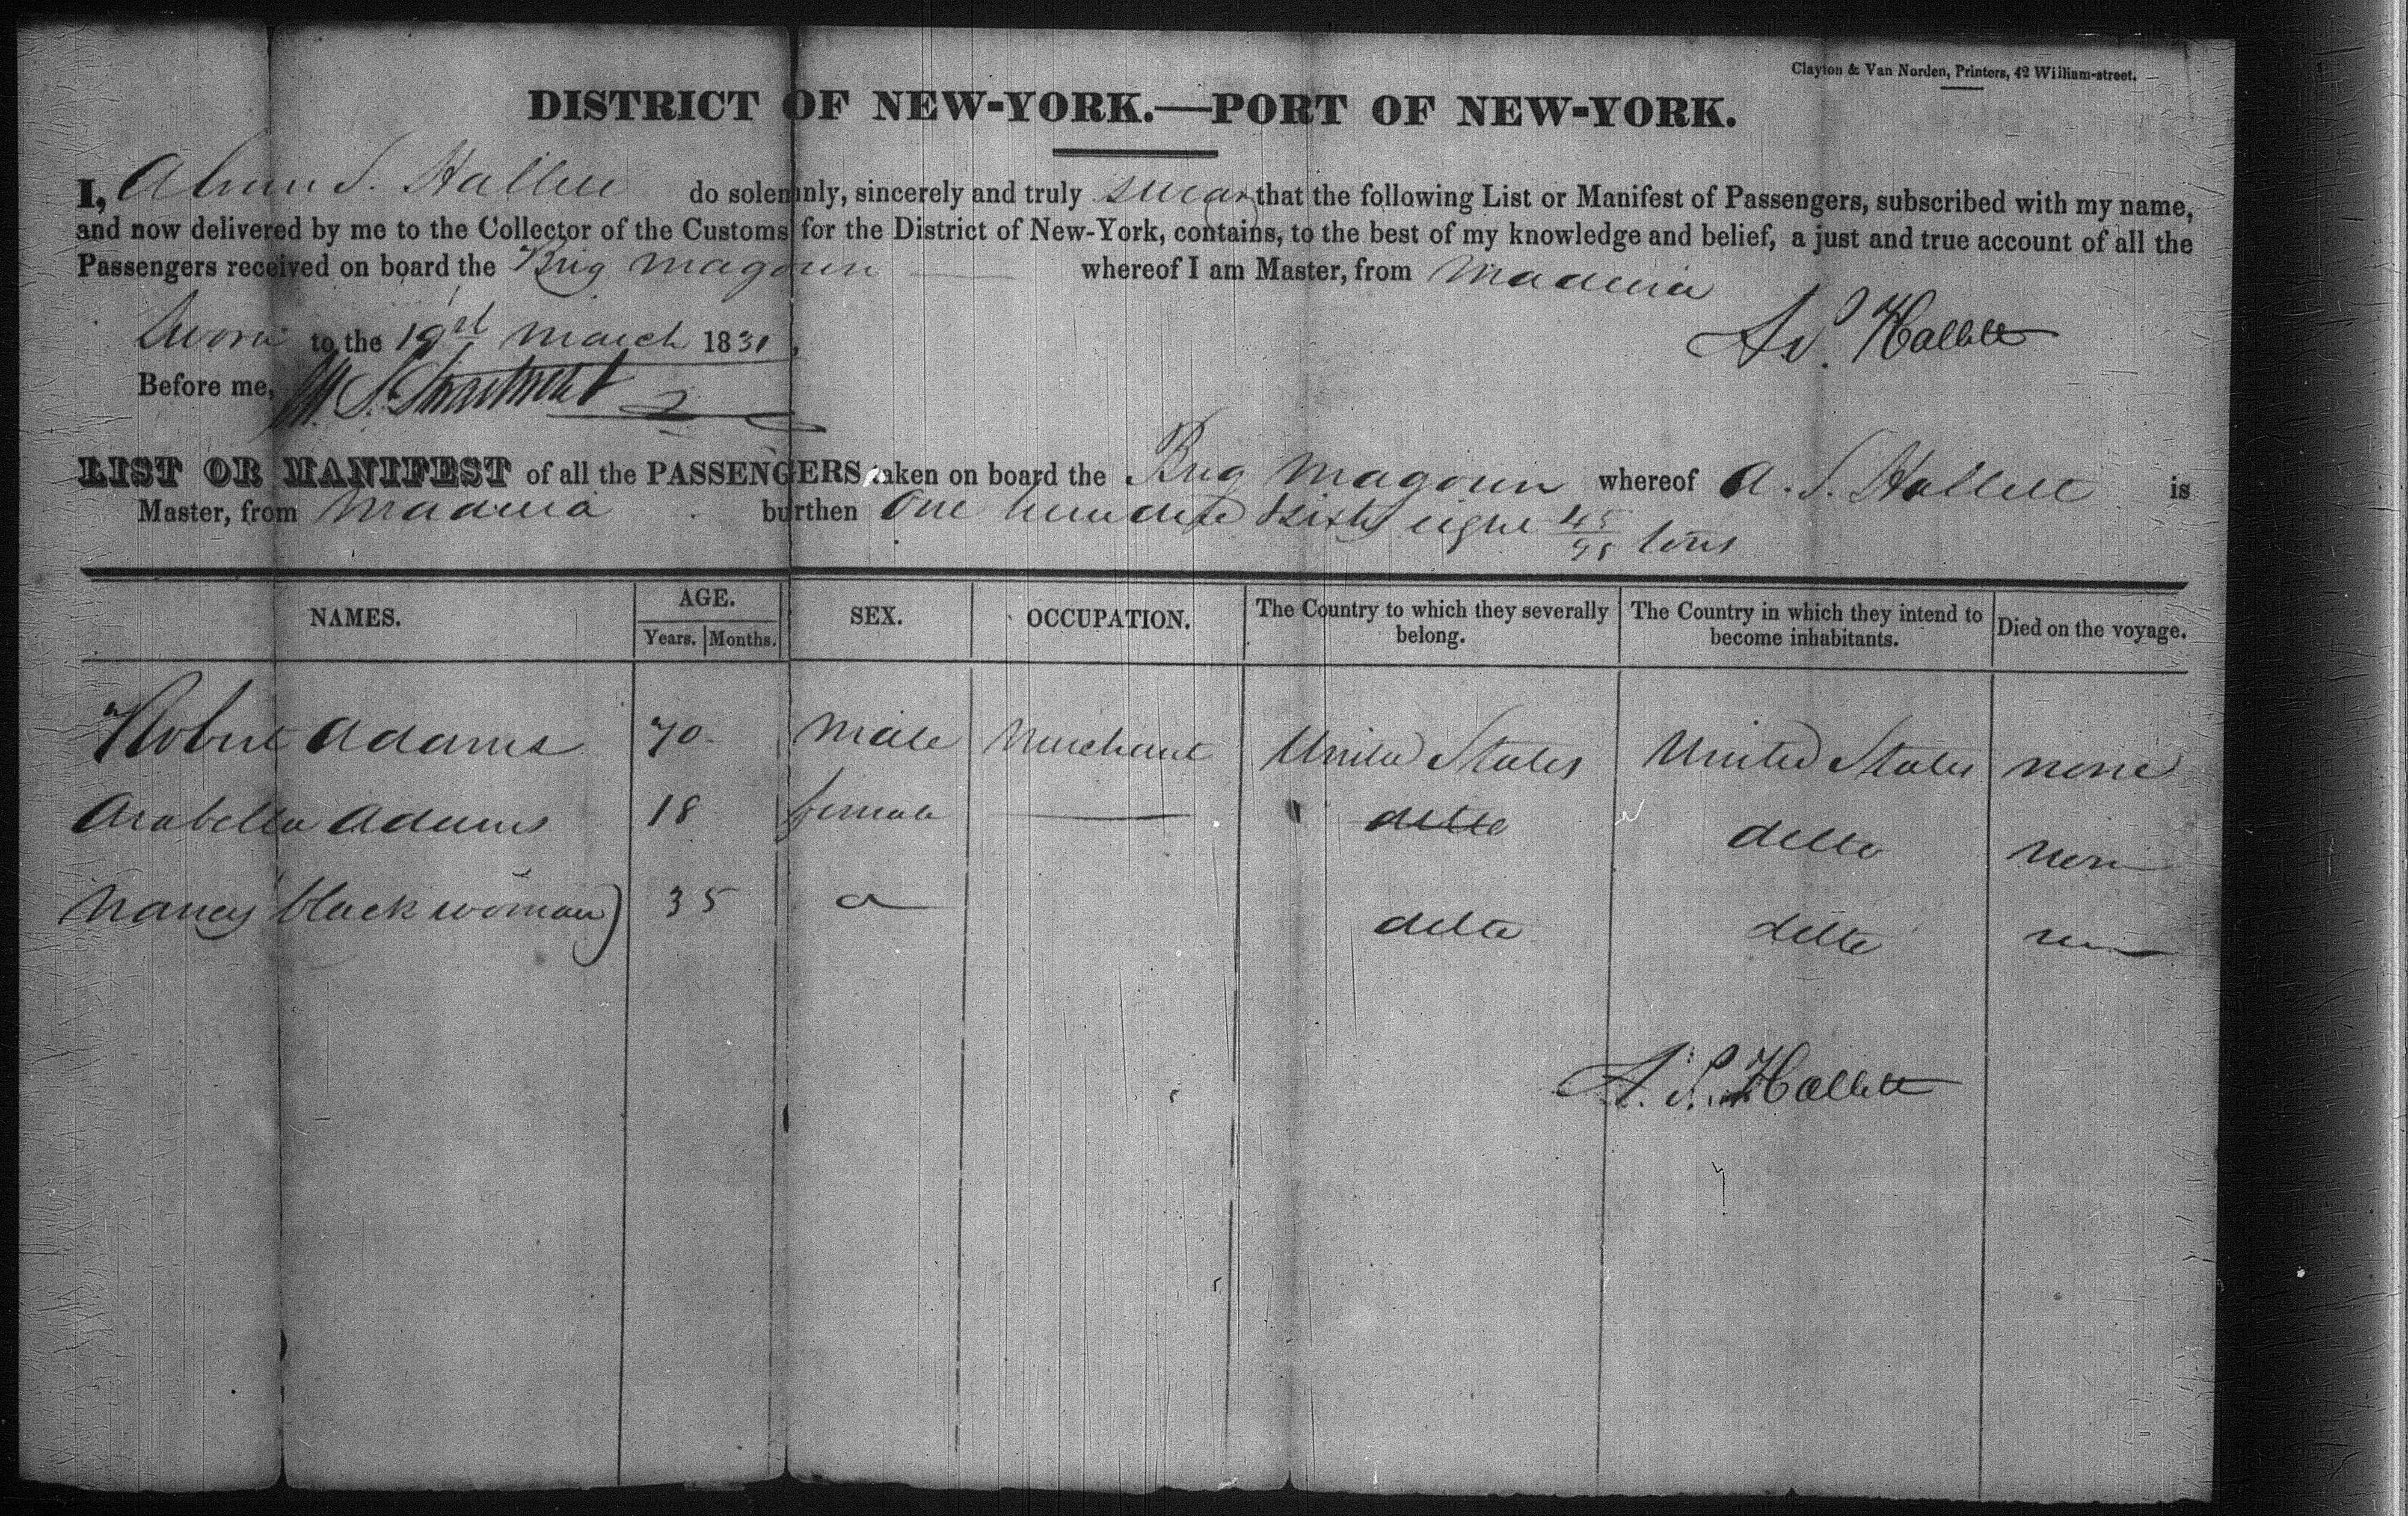 Clayton & Van Norden, Printers, 42 William-street.
DISTRICT OF NEW-YORK.—PORT OF NEW-YORK.
I, S. Hallett do solemnly, sincerely and truly swear that the following List or Manifest of Passengers, subscribed with my name,
and now delivered by me to the Collector of the Customs for the District of New-York, contains, to the best of my knowledge and belief, a just and true account of all the
Passengers received on board the Brig Magoun whereof I am Master, from Madeira
Sworn to the 19st March 1831, A S. Hallett
Before me,
LIST OR MANIFEST of all the PASSENGERS taken on board the Brig Magoun whereof A. S. Hallett is
Master, from Madeira burthen One hundred & sixty eight 45/95 tons
NAMES. AGE. Years. Months. SEX. OCCUPATION. The Country to which they severally belong. The Country in which they intend to become inhabitants. Died on the voyage.
Robert Adams 70 Male Merchant United States United States none
Arabella Adams 18 female — ditto ditto none
Nancy (black woman) 35 ditto ditto none
A. S. Hallett